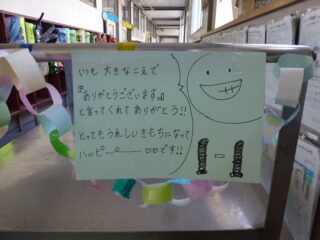 いつも 大きなこえで
『ありがとうございます』
と言ってくれて ありがとう!!
とってもうれしいきもちになって
ハッピー ♡♡です!!